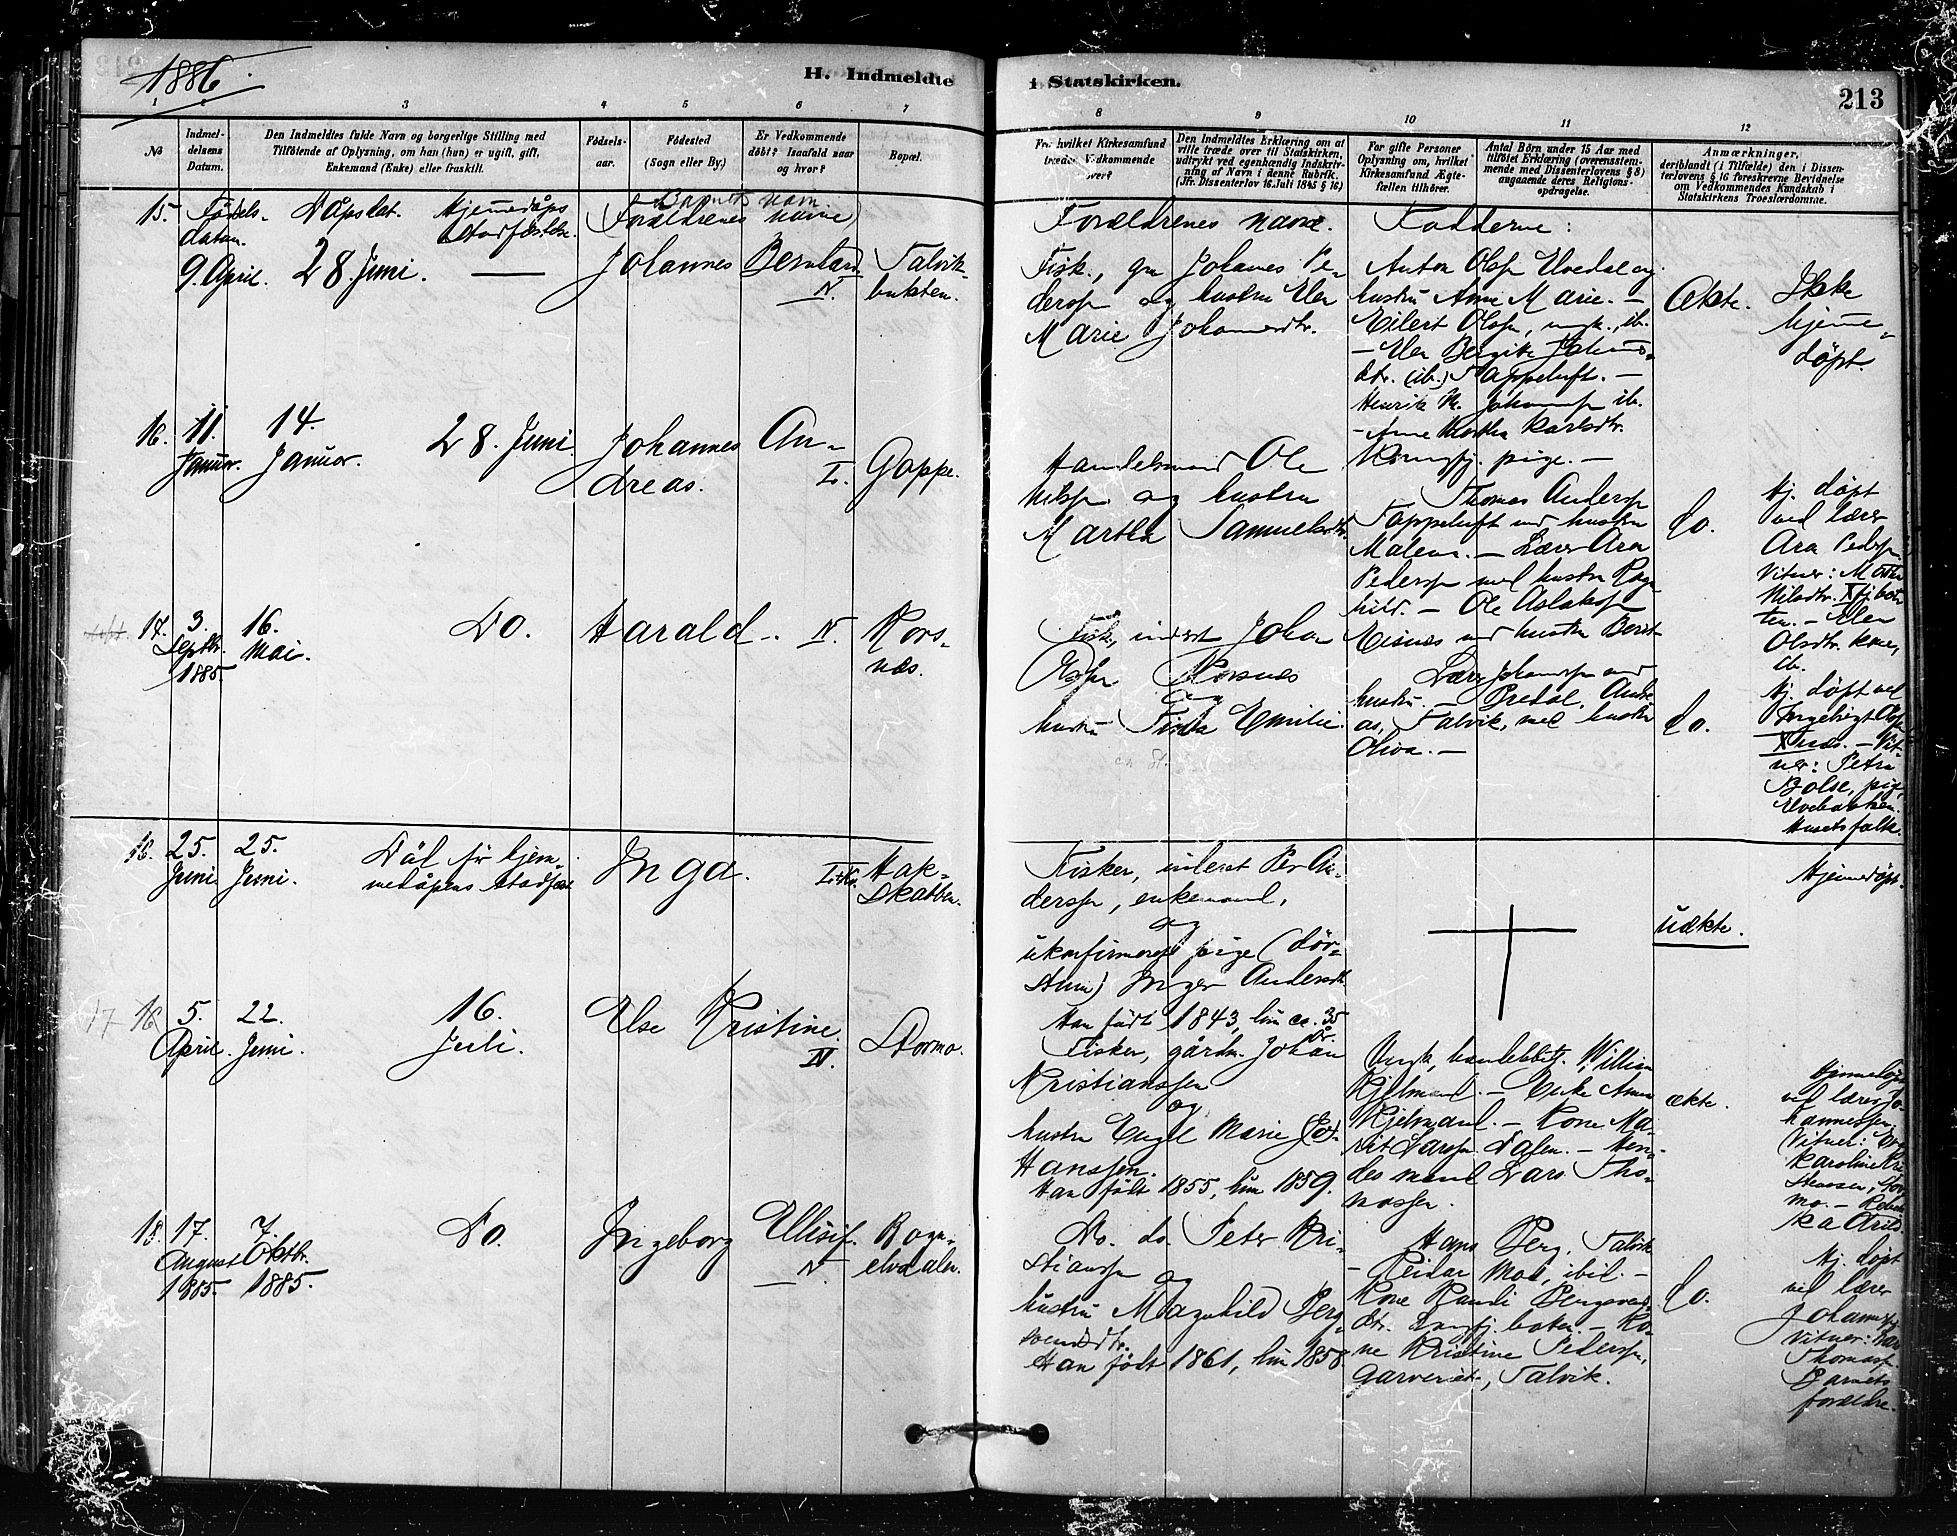 1886
H. Indmeldte
i Statskirken.
213
1 2 3 4 5 6 7
8 9 10 11 12
No
Indmel-
delsens
Datum.
Den Indmeldtes fulde Navn og borgerlige Stilling med
Tilföiende af Oplysning, om han (hun) er ugift, gift,
Enkemand (Enke) eller fraskilt.
Fødsels-
aar.
Fødested
(Sogn eller By.)
Er Vedkommende
döbt? Isaafald naar
og hvor?
Bopæl.
Fra hvilket Kirkesamfund
træder Vedkommende
over?
Den Indmeldtes Erklæring om at
ville træde over til Statskirken,
udtrykt ved egenhændig Indskriv-
ning af Navn i denne Rubrik.
(Jfr. Dissenterlov 16 Juli 1845 § 16)
For gifte Personer
Oplysning om, hvilket
Kirkesamfund Ægte-
fællen tilhörer.
Antal Börn under 15 Aar med
tilföiet Erklæring (overensstem-
mende med Dissenterlovens § 8)
angaaende deres Religions-
opdragelse.
Anmærkninger,
deriblandt (i Tilfælde) den i Dissen-
terlovens § 16 foreskrevne Bevidnelse
om Vedkommendes Kundskab i
Statskirkens Troeslærdomme.
15. Födsels-
datum.
Dåpsdat.
Hjemmedåps
stadfæstelse.
Barnets navn
(Forældrenes navne)
9. April. 28 Juni. —
Johannes Bernhard
N.
Talvik-
bukten.
Forældrenes navne.
Fadderne:
Fisk., gm Johanes Pe-
dersen og hustru Elen
Marie Johannesdtr.
Anton Olsen
hustru Anne Marie. —
Eilert Olsen, ungk., ib.
— Elen Bergitte
dtr. (ib.) Tappeluft. —
Henrik M. Johannesen ib.
- Anne Martha Karlsdtr.
pige. —
Ækte.
Ikke
hjemme-
döpt.
16. 11.
Januar.
14.
Januar.
28. Juni
Johannes An-
dreas.
L.
Goppe.
Handelsmand Ole
Nilssen og hustru
Martha Samuelsdtr.
Thomas Anderssen
Tappeluft med hustru
Malena. — Lærer Aron
Pederssen med hustru Rag-
hild. — Ole Aslaksen
Eisnes med hustru Berit
do.
Hj. döpt
ved lærer
Aron Pedersen.
Vitner: Marthe
Nilsdtr.
ten. — Elen
Olsdtr. kone,
ib.
17. 3.
Septbr.
1885.
16.
Mai.
Do.
Harald.
N.
Kors-
nes.
Fisk., inderst Johan
Korsnes
og
hustru Emilie.
Lars Johannssen med
hustru. — Bredal, Andre-
as, Talvik, med hustru
Oliva. —
do.
Hj. döpt ved
Ingebrigt Olsen
— Vit-
ner: Petra
Bolse, pige,
Elvebakken.
Husets folk.
16. 25.
Juni.
25.
Juni.
Död för hjem-
medåpens stadfæst.
Inga.
Hak-
skabben.
Fisker, inderst Per An-
derssen, enkemand,
og
ukonfirmeret pige (döv-
stum) Inger Andersdtr.
Han födt 1843, hun ca. 35
år.
uækte.
Hjemmedöpt.
17 16 5.
April.
22.
Juni.
16.
Juli.
Else Kristine.
N.
Stormo.
Fisker, gårdm. Johan
Kristianssen
og
hustru Engel Marie Jo-
Hanssen.
Han födt 1855, hun 1859.
Ungk., handelsbetj. William
Kjelmand. — Enke Anna
Kjelmand. — Kone Ma-
rit Larssen, Dalen. — Hen-
des mand Lars Tho-
massen.
ækte.
Hjemmedöpt
ved lærer Jo-
hannessen,
Vitner:
Karoline Kri-
stensen, Stor-
mo. — Rebek-
ka Arild.
18. 17.
August
1885.
7.
Oktbr.
1885.
Do.
Ingeborg Ellisif.
N.
Rogn-
elvdalen.
Do. do. Peter Kri-
stianssen
og
hustru Magnhild Berg-
svendsdtr.
Han födt 1861, hun 1858.
Hans Berg, Talvik
- Peidar Moe, ibid. —
Kone Randi Bergsvend-
dtr. Langfj. botn. — Ko-
ne Kristine Pederssen,
Garveriet, Talvik.
do.
Hj. döpt
ved lærer
Johannessen
Vitner: Lars
Thomassen
Barnets
forældre.